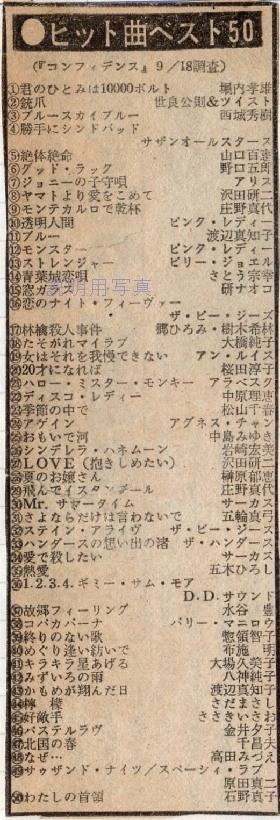 ●ヒット曲ベスト50
(『コンフィデンス』9/18調査)
①君のひとみは10000ボルト 堀内孝雄
②銃爪 世良公則&ツイスト
③ブルースカイブルー 西城秀樹
④勝手にシンドバッド
サザンオールスターズ
⑤絶体絶命 山口百恵
⑥グッド・ラック 野口五郎
⑦ジョニーの子守唄 アリス
⑧ヤマトより愛をこめて 沢田研二
⑨モンテカルロで乾杯 庄野真代
⑩透明人間 ピンク・レディー
⑪ブルー 渡辺真知子
⑫モンスター ピンク・レディー
⑬ストレンジャー ビリー・ジョエル
⑭青葉城恋唄 さとう宗幸
⑮窓ガ 研ナオコ
説明用写真
⑯恋のナイト・フィーヴァー
ザ・ビー・ジーズ
⑰林檎殺人事件 郷ひろみ・樹木希林
⑱たそがれマイラブ 大橋純子
⑲女はそれを我慢できない アン・ルイス
⑳20才になれば 桜田淳子
㉑ハロー・ミスター・モンキー アラベスク
㉒ディスコ・レディー 中原理恵
㉓季節の中で 松山千春
㉔アゲイン アグネス・チャン
㉕おもいで河 中島みゆき
㉖シンデレラ・ハネムーン 岩崎宏美
㉗LOVE(抱きしめたい) 沢田研二
㉘夏のお嬢さん 榊原郁恵
㉙飛んでイスタンブール 庄野真代
㉚Mr.サマータイム サーカス
㉛さよならだけは言わないで 五輪真弓
㉜ステイン・アライヴ ザ・ビー・ジーズ
㉝ハンダースの想い出の渚 ザ・ハンダース
㉞愛で殺したい サーカス
㉟熱愛 五木ひろし
㊱1.2.3.4.ギミー・サム・モア
D.D.サウンド
㊲故郷フィーリング 水谷豊
㊳コパカバーナ バリー・マニロウ
㊴終りのない歌 惣領智子
㊵めぐり逢い紡いで 布施明
㊶キラキラ星あげる 大場久美子
㊷みずいろの雨 八神純子
㊸かもめが翔んだ日 渡辺真知子
㊹檸檬 さだまさし
㊺好敵手 ささきいさお
㊻パステルラヴ 金井夕子
㊼北国の春 千昌夫
㊽なぜ… 高田みづえ
㊾サウザンド・ナイツ/スペーシィ・ラブ
原田真二
㊿わたしの首領 石野真子